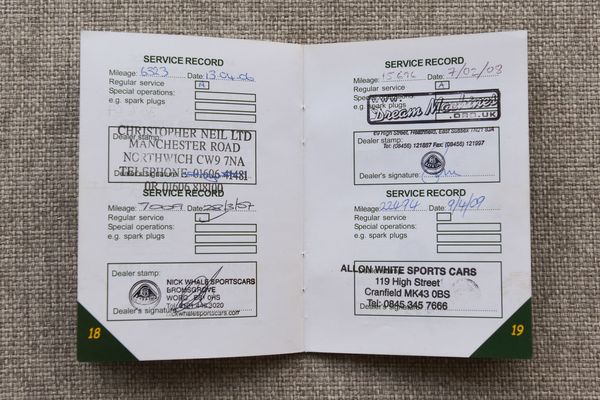 SERVICE RECORD
Mileage: 6523 Date: 13.04.06
Regular service
Special operations:
e.g. spark plugs
Dealer stamp:
CHRISTOPHER NEIL LTD
MANCHESTER ROAD
NORTHWICH CW9 7NA
TELEPHONE 01606 41481
OR 01606 818100
SERVICE RECORD
Mileage: 7009 Date: 28/3/07
Regular service
Special operations:
e.g. spark plugs
Dealer stamp:
NICK WHALE SPORTSCARS
BROMSGROVE
Dealer's signature:
18
SERVICE RECORD
Mileage: 15696 Date: 7/02/08
Regular service A
Special operations:
e.g. spark plugs
www.
Dream Machines
.co.uk
Dealer stamp:
89 High Street, Heathfield, East Sussex TN21 8JA
Tel: (08456) 121887 Fax: (08456) 121997
Dealer's signature:
SERVICE RECORD
Mileage: 22494 Date: 9/4/09
Regular service
Special operations:
e.g. spark plugs
ALLON WHITE SPORTS CARS
119 High Street
Cranfield MK43 0BS
Tel: 0845 345 7666
Dealer's signature:
19